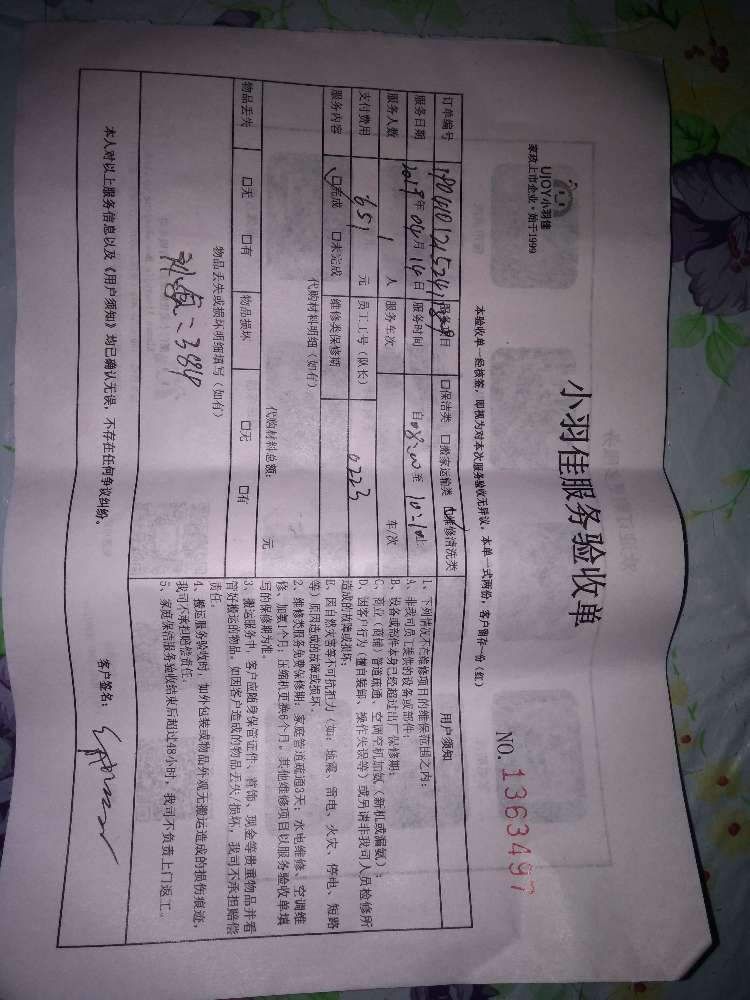 UJOY小羽佳
家政上市企业·始于1999
小羽佳服务验收单
NO. 1363497
本验收单一经核签，即视为对本次服务验收无异议。本单一式两份，客户留存一份（红）
订单编号 服务项目 □保洁类 □搬家运输类 □维修清洗类
服务日期 2019年04月14日 服务时间 自08:00至
服务人数 1 人 服务车次 车/次
支付费用 651 元 员工工号（队长） 0223
服务内容 □完成 □未完成 维修类保修期
代购材料明细（如有）
代购材料总额： 元
物品丢失 □无 □有 物品损坏 □无 □有
物品丢失或损坏明细填写（如有）
用户须知
1、下列情况不在维修项目的维保范围之内：
A、非我司员工提供的设备或部件；
B、设备或部件本身已经超过出厂保修期；
C、商立（商铺）管道疏通、空调空机加氨（新机或漏氨）；
D、因客户行为（擅自装卸、操作失误等）或另请非我司人员检修所
造成的故障或损坏；
E、因自然灾害等不可抗拒力（如：地震、雷电、火灾、停电、短路
等）原因造成的故障或损坏。
2、维修类服务免费保修期：家庭管道疏通3天；水电维修、空调维
修、加氨1个月，压缩机更换6个月。其他维修项目以服务验收单填
写的保修期为准。
3、搬运服务中，客户应随身保管证件、首饰、现金等贵重物品并看
管好搬运的物品。如因客户造成的物品丢失/损坏，我司不承担赔偿
责任。
4、搬运服务验收时，如外包装或物品外观无搬运造成的损伤痕迹，
我司不承担赔偿责任。
5、家庭保洁服务验收结束后超过48小时，我司不负责上门返工。
本人对以上服务信息以及《用户须知》均已确认无误，不存在任何争议纠纷。
客户签名：